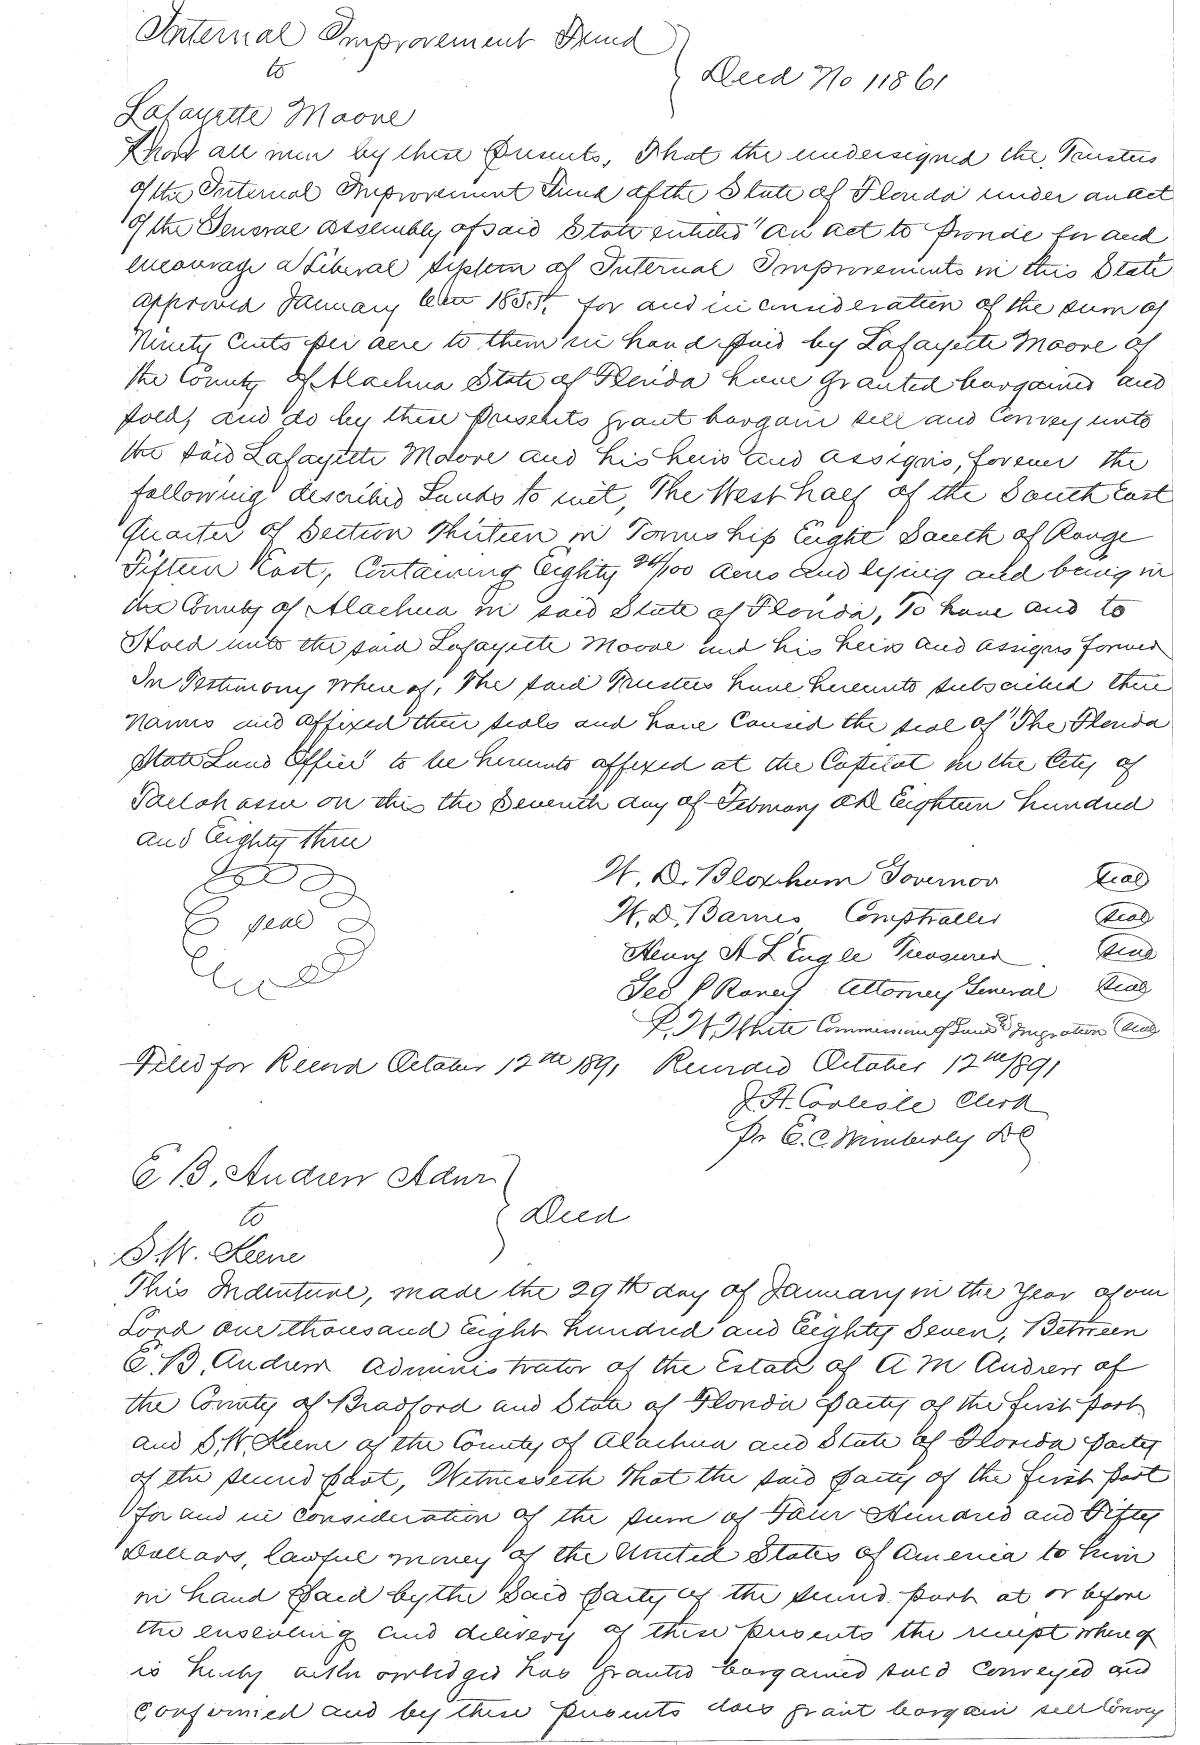 Internal Improvement Fund
to
Deed No 11861
Lafayette Moore
Know all men by these Presents, That the undersigned the Trustees
Of the Internal Improvement Fund of the State of Florida under an act
Of the General Assembly of said State entitled "An act to Provide for and
encourage a Liberal System of Internal Improvements in this State
approved January 1855, for and in consideration of the sum of
Ninety Cents per acre to them in hand paid by Lafayette Moore of
the County of Alachua State of Florida have Granted bargained and
sold, and do by these presents grant bargain sell and Convey unto
the said Lafayette Moore and his heirs and assigns, forever the
following described Lands to wit, The West half of the South East
Quarter of Section Thirteen in Township Eight South of Range
Fifteen East, Containing Eighty /100 acres and lying and being in
the County of Alachua in said State of Florida, To have and to
Hold unto the said Lafayette Moore and his heirs and assigns forever
In Testimony Whereof, The said Trustees have hereunto subscribed their
Names and affixed their seals and have Caused the seal of "The Florida
State Land Office" to be hereunto affixed at the Capitol in the City of
Tallahassee on this the Seventh day of February AD Eighteen hundred
and Eighty three
seal
W. D. Bloxham Governor seal
W. D. Barnes Comptroller seal
Henry A L'Engle Treasurer seal
Geo P Raney Attorney General seal
P. W. White Commission of Lands & Imgration seal
Filed for Record October 12th 1891 Recorded October 12th 1891
J. A. Carlisle Clerk
Pr E. C. Wimberly DC
E B. Andrew Admr
to
Deed
S. W. Keene
This Indenture, made the 29th day of January in the Year of our
Lord one thousand Eight hundred and Eighty Seven, Between
E. B. Andrew Administrator of the Estate of A M Andrew of
the County of Bradford and State of Florida Party of the first part
and S. W. Keene of the County of Alachua and State of Florida party
of the second part, Witnesseth that the said party of the first part
for and in consideration of the sum of Four Hundred and Fifty
Dollars, lawful money of the United States of America to him
in hand paid by the Said party of the second part at or before
the ensealing and delivery of these presents the receipt whereof
is hereby acknowledged has granted bargained sold Conveyed and
Confirmed and by these presents does grant bargain sell Convey